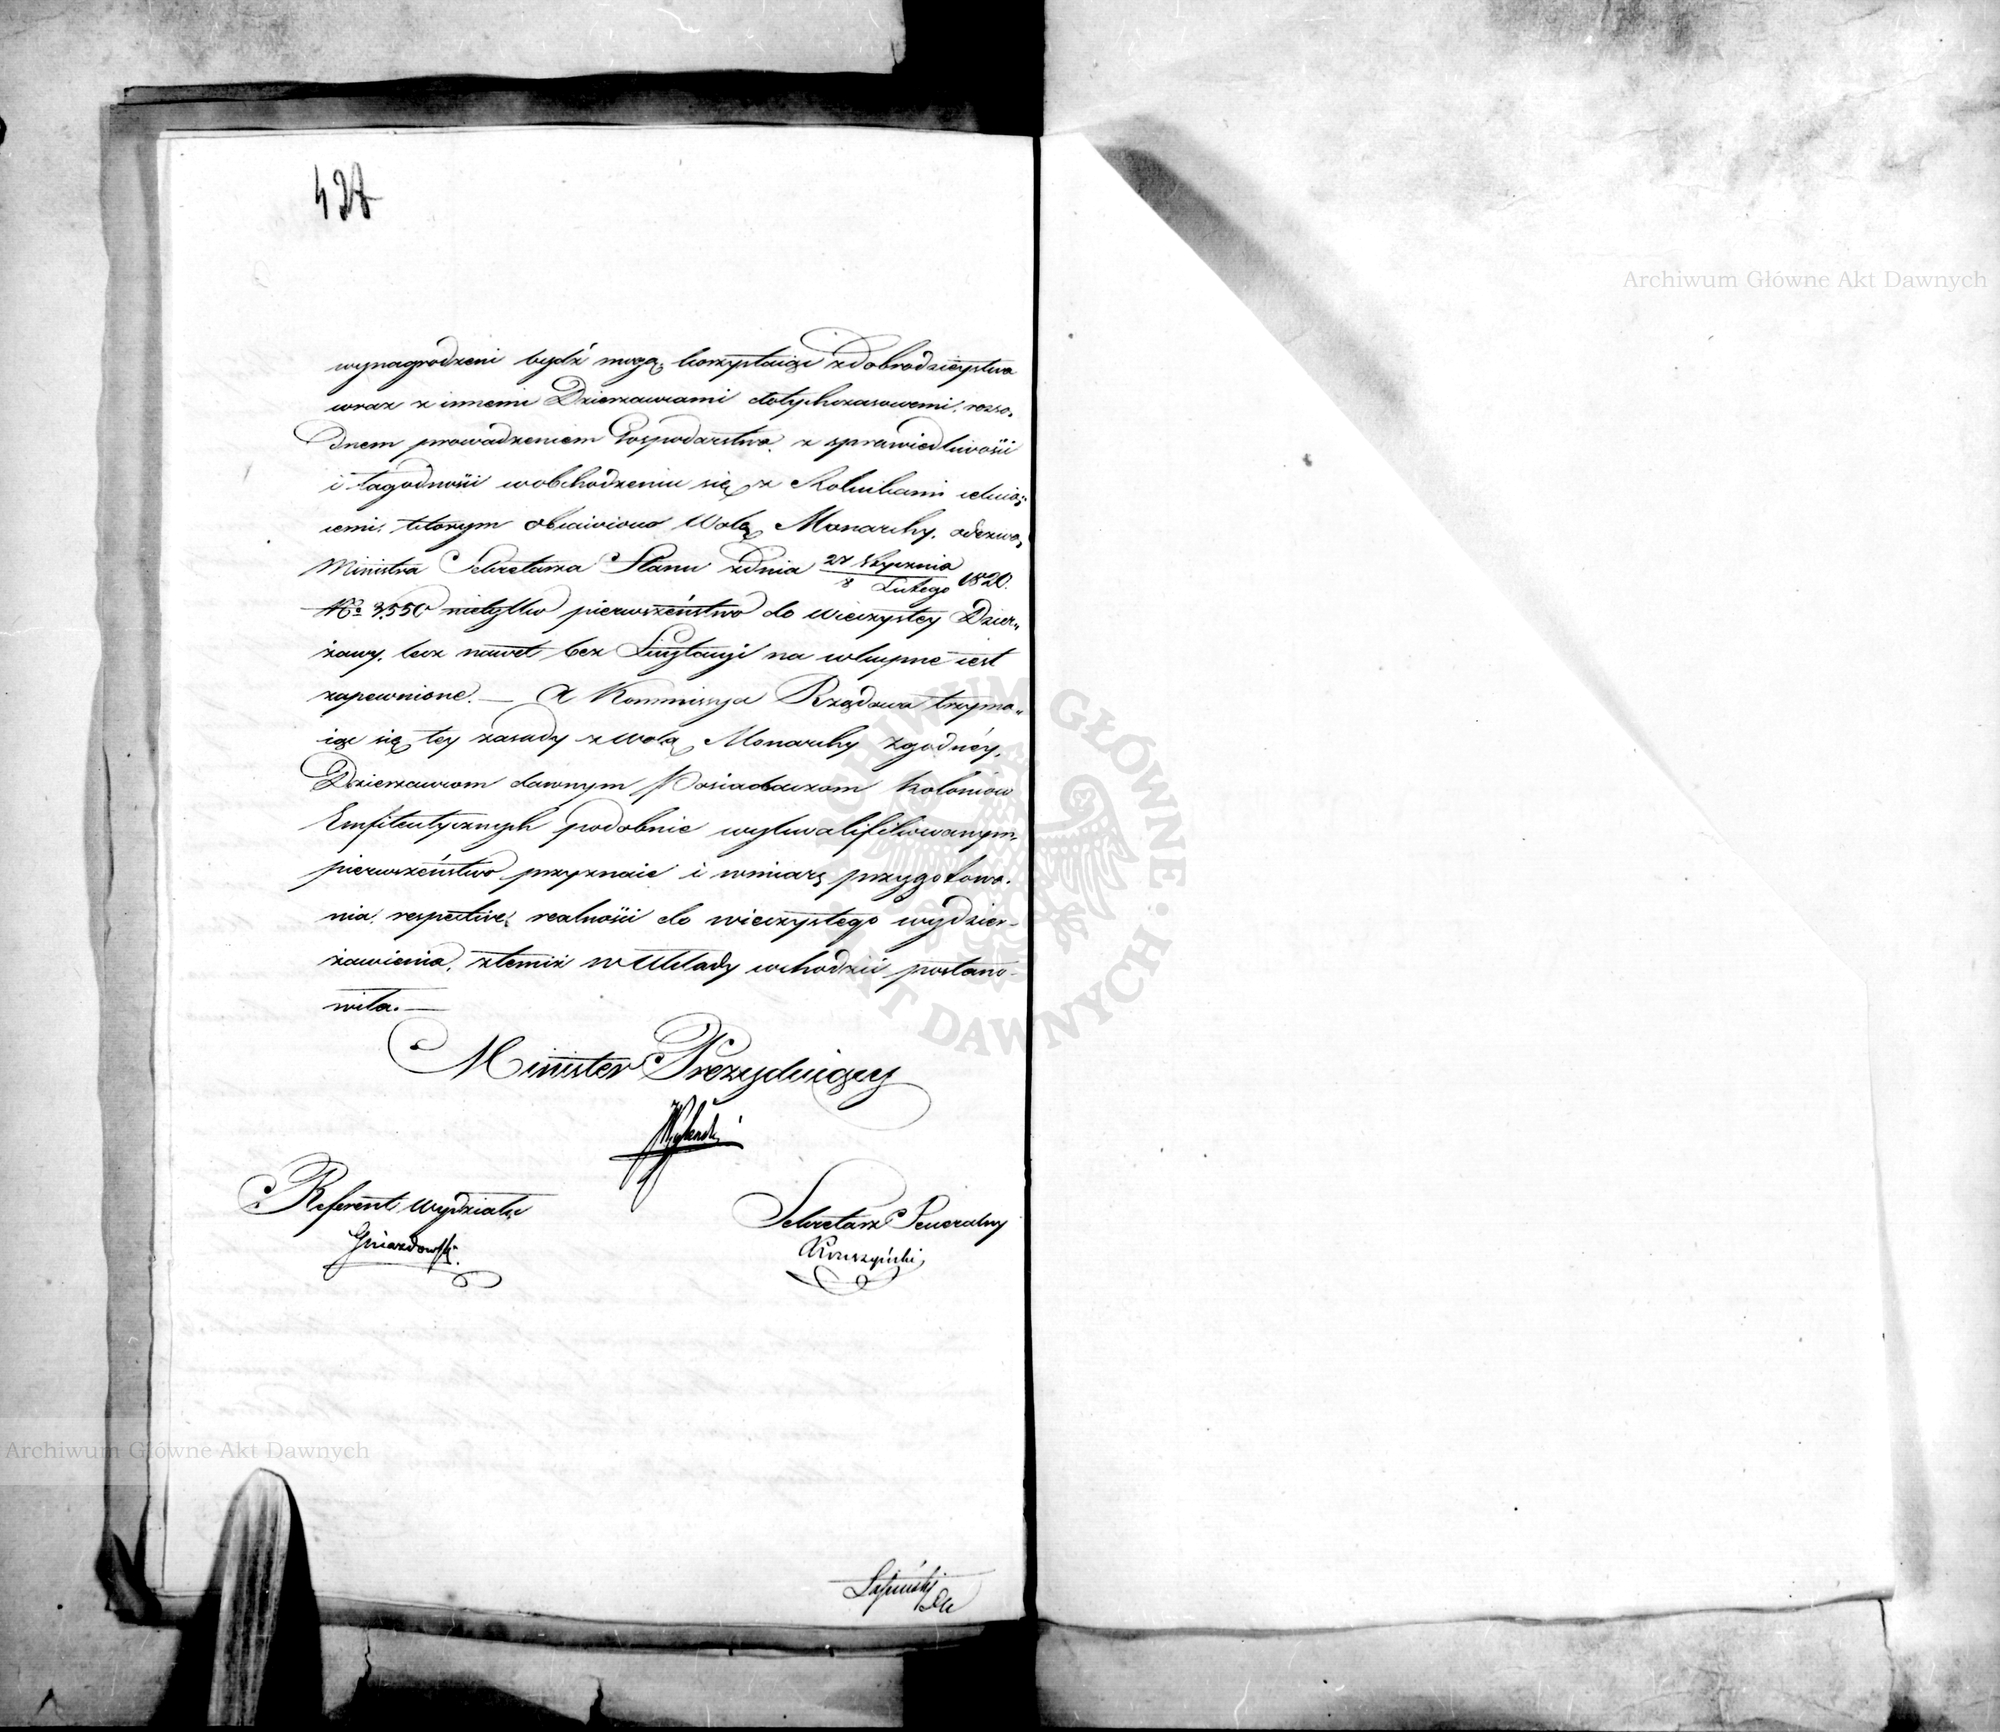 427
wynagrodzeni bydź mogą, korzystaiąc z dobrodzieystwa
wraz z innemi Dzierzawcami dotychczasowemi, rozso-
dnem prowadzeniem Gospodarstwa, z sprawiedliwości
i łagodności w obchodzeniu się z Rolnikami
którym obiawiono Wolą Monarchy, odezwą
Ministra Sekretarza Stanu z dnia 27 Stycznia
8 Lutego 1820.
No 3,550 nietylko pierwszeństwo do wieczystey Dzier-
żawy, lecz nawet bez Licytacyi na wkupne iest
zapewnione. — A Kommissya Rządowa trzyma-
iąc się tey zasady z Wolą Monarchy zgodnéy,
Dzierzawcom dawnym Posiadaczom koloniow
Emfiteutycznych podobnie wykwalifikowanym,
pierwszeństwo przyznaie i w miarę przygotowa-
nia, respective, realności do wieczystego wydzier-
zawienia, z temiż w Układy wchodzić postano-
wiła. —
Minister Prezyduiący
Referent Wydziału
Gniazdowski.
Sekretarz Generalny
Kruszyński
ARCHIWUM GŁÓWNE AKT DAWNYCH
Archiwum Główne Akt Dawnych
Archiwum Główne Akt Dawnych